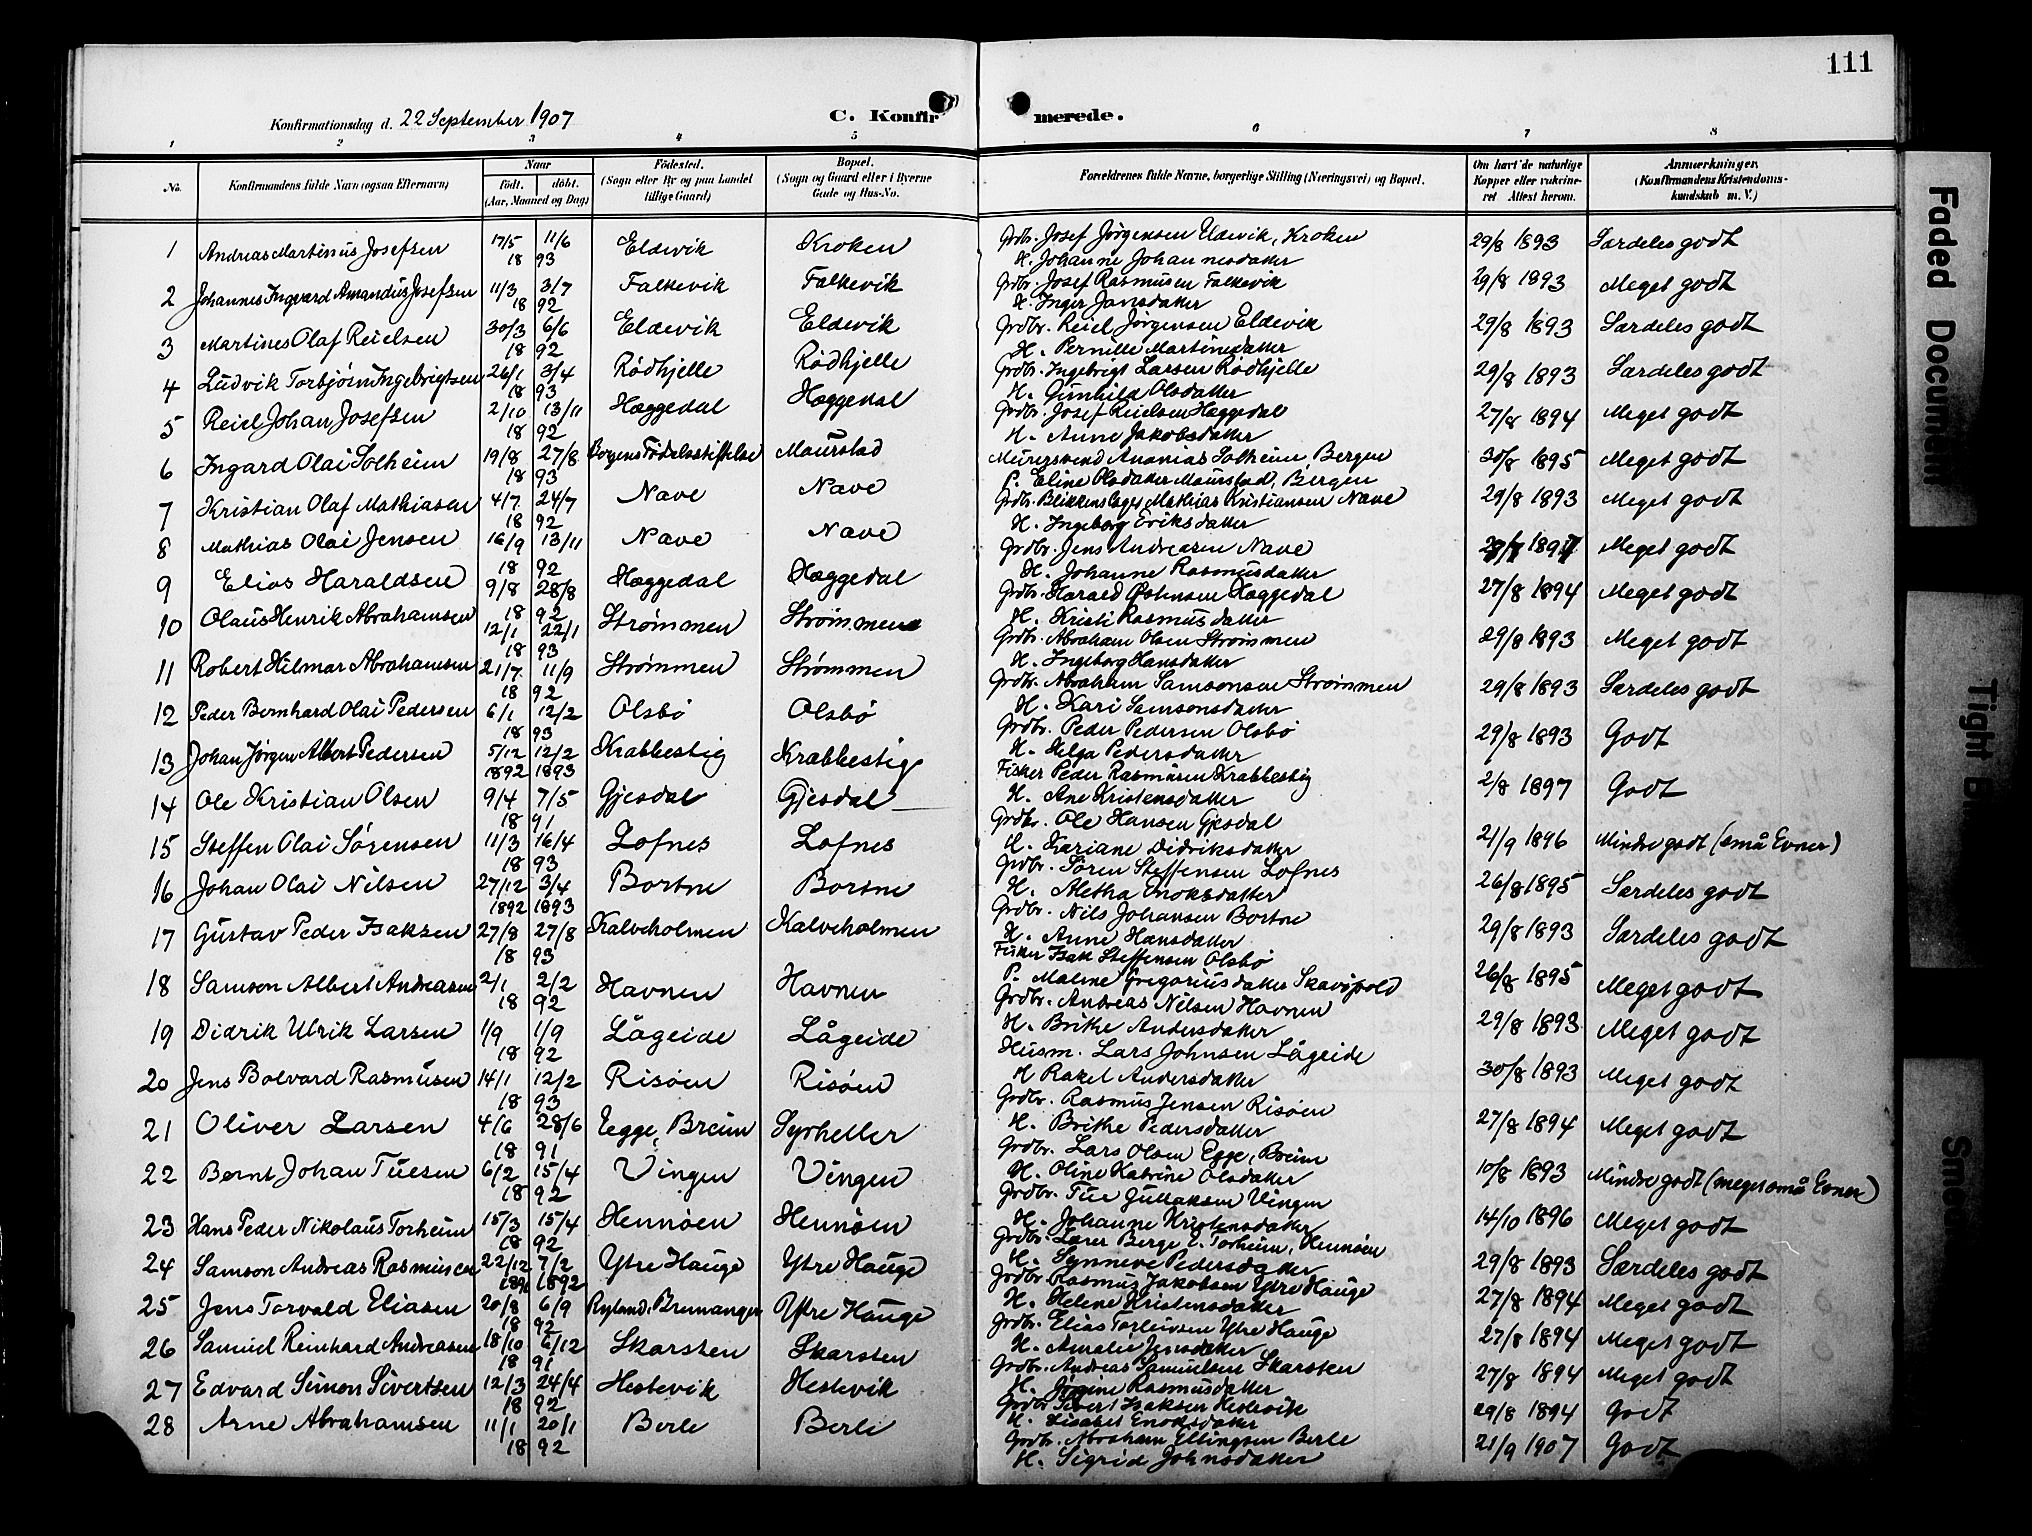 111
Konfirmationsdag d. 22 September 1907
C. Konfirmerede.
1 2 3 4 5 6 7 8
No. Konfirmandens fulde Navn (ogsaa Efternavn) Naar født. døbt. (Aar, Maaned og Dag) Fødested. (Sogn eller By og paa Landet tillige Gaard) Bopæl. (Sogn og Gaard eller i Byerne Gade og Hus-No. Forældrenes fulde Navne, borgerlige Stilling (Næringsvei) og Bopæl. Om havt de naturlige Kopper eller vaksineret Attest herom. Anmærkninger. (Konfirmandens Kristendomskundskab m. V.)
1 Andreas Martinus Josefsen 17/5 11/6 18 93 Eldevik Kroken Grdbr. Josef Jørgensen Eldevik, Kroken 29/8 1893 Særdeles godt
H. Johanne Johannesdatter
2 Johannes Ingvard Amandus Josefsen 11/3 3/7 18 92 Falkevik Falkevik Grdbr. Josef Rasmusen Falkevik 29/8 1893 Meget godt
H. Inger Jansdatter
3 Martines Olaf Reielsen 30/3 6/6 18 92 Eldevik Eldevik Grdbr. Reiel Jørgensen Eldevik 29/8 1893 Særdeles godt
H. Pernille Martinsdatter
4 Ludvik Torbjørn Ingebrigtsen 26/1 3/4 18 93 Rødhjelle Rødhjelle Grdbr. Ingebrigt Larsen Rødhjelle 29/8 1893 Særdeles godt
H. Gunhild Olsdatter
5 Reiel Johan Josefsen 2/10 13/11 18 92 Hæggedal Hæggedal Grdbr. Josef Reielsen Hæggedal 27/8 1894 Meget godt
H. Anne Jakobsdatter
6 Ingard Olai Solheim 19/8 27/8 18 93 Fødselsstiftelse Maurstad Murersvend Ananias Solheim Bergen 30/8 1895 Meget godt
P. Eline Olsdatter Maurstad, Bergen
7 Kristian Olaf Mathiasen 4/7 24/7 18 92 Nave Nave Grdbr. Mathias Kristiansen Nave 29/8 1893 Meget godt
H. Ingeborg Eriksdatter
8 Mathias Olai Jensen 16/9 13/11 18 92 Nave Nave Grdbr. Jens Andreasen Nave Meget godt
H. Johanne Rasmusdatter
9 Elias Haraldsen 9/8 28/8 18 92 Hæggedal Hæggedal Grdbr. Harald Hæggedal 27/8 1894 Meget godt
H. Kristi Rasmusdatter
10 Olaus Henrik Abrahamsen 12/1 22/1 18 93 Strømmen Strømmen Grdbr. Abraham Olsen Strømmen 29/8 1893 Meget godt
H. Ingeborg Hansdatter
11 Robert Hilmar Abrahamsen 21/7 11/9 18 92 Strømmen Strømmen Grdbr. Abraham Samsonsen Strømmen 29/8 1893 Særdeles godt
H. Kari Samsonsdatter
12 Peder Bernhard Olai Pedersen 6/1 12/2 18 93 Olsbö Olsbö Grdbr. Peder Pedersen Olsbö 29/8 1893 Godt
H. Helga Pedersdatter
13 Johan Jørgen Albert Pedersen 5/12 12/2 1892 1893 Krabbestig Krabbestig Fisker Peder Rasmusen Krabbestig 2/8 1897 Godt
H. Ane Kristensdatter
14 Ole Kristian Olsen 9/4 7/5 18 91 Gjesdal Gjesdal Grdbr. Ole Hansen Gjesdal 21/9 1896 Mindre godt (små Evner)
H. Karianne Didriksdatter
15 Steffen Olai Sørensen 11/3 16/4 18 93 Lofnes Lofnes Grdbr. Søren Steffensen Lofnes 26/8 1895 Særdeles godt
H. Aletha Enoksdatter
16 Johan Olai Nilsen 27/12 3/4 1892 1893 Bortne Bortne Grdbr. Nils Johansen Bortne 29/8 1893 Særdeles godt
H. Anne Hansdatter
17 Gustav Peder Isaksen 27/8 27/8 18 93 Kalveholmen Kalveholmen Fisker Isak Steffensen Olsbö 26/8 1895 Meget godt
P. Malene Gregoriusdatter
18 Samson Albert Andreasen 2/1 2/2 18 92 Havnen Havnen Grdbr. Andreas Nilsen Havnen 29/8 1893 Meget godt
H. Brithe Andersdatter
19 Didrik Ulrik Larsen 1/9 1/9 18 92 Lågeide Lågeide Husm. Lars Johnsen Lågeide 30/8 1893 Meget godt
H Rakel Andersdatter
20 Jens Bolvard Rasmusen 14/1 12/2 18 93 Risöen Risöen Grdbr. Rasmus Jensen Risöen 27/8 1894 Meget godt
H. Brithe Pedersdatter
21 Oliver Larsen 4/6 28/6 18 91 Egge, Breim Syrheller Grdbr. Lars Olsen Egge, Breim 10/8 1893 Mindre godt (meget små Evner)
H. Oline Katrine Olsdatter
22 Bernt Johan Tuesen 6/2 15/4 18 92 Vingen Vingen Grdbr. Tue Gullaksen Vingen 14/10 1896 Meget godt
H. Johanne Kristensdatter
23 Hans Peder Nikolaus Torheim 15/3 15/4 18 92 Hennöen Hennöen Grdbr. Lærer Berge Torheim, Hennöen 29/8 1893 Særdeles godt
H. Synneve Pedersdatter
24 Samson Andreas Rasmusen 22/12 7/2 1891 1892 Ytre Hauge Ytre Hauge Grdbr. Rasmus Jakobsen Ytre Hauge 27/8 1894 Meget godt
H. Helene Kristensdatter
25 Jens Torvald Eliasen 20/8 6/9 18 92 Ryland, Bremanger Ytre Hauge Grdbr. Elias Torleivsen Ytre Hauge 27/8 1894 Meget godt
H. Amalie Jensdatter
26 Samuel Reinhard Andreasen 18/10 6/12 18 91 Skarsten Skarsten Grdbr. Andreas Samuelsen Skarsten 27/8 1894 Meget godt
H. Rasmusdatter
27 Edvard Simon Sivertsen 12/3 24/4 18 92 Hestevik Hestevik Grdbr. Sivert Isaksen Hestevik 29/8 1894 Godt
H. Lisabet Enoksdatter
28 Arne Abrahamsen 11/1 20/1 18 92 Berle Berle Grdbr. Abraham Ellingsen Berle 21/9 1907 Godt
H. Sigrid Johnsdatter
Faded Document
Tight